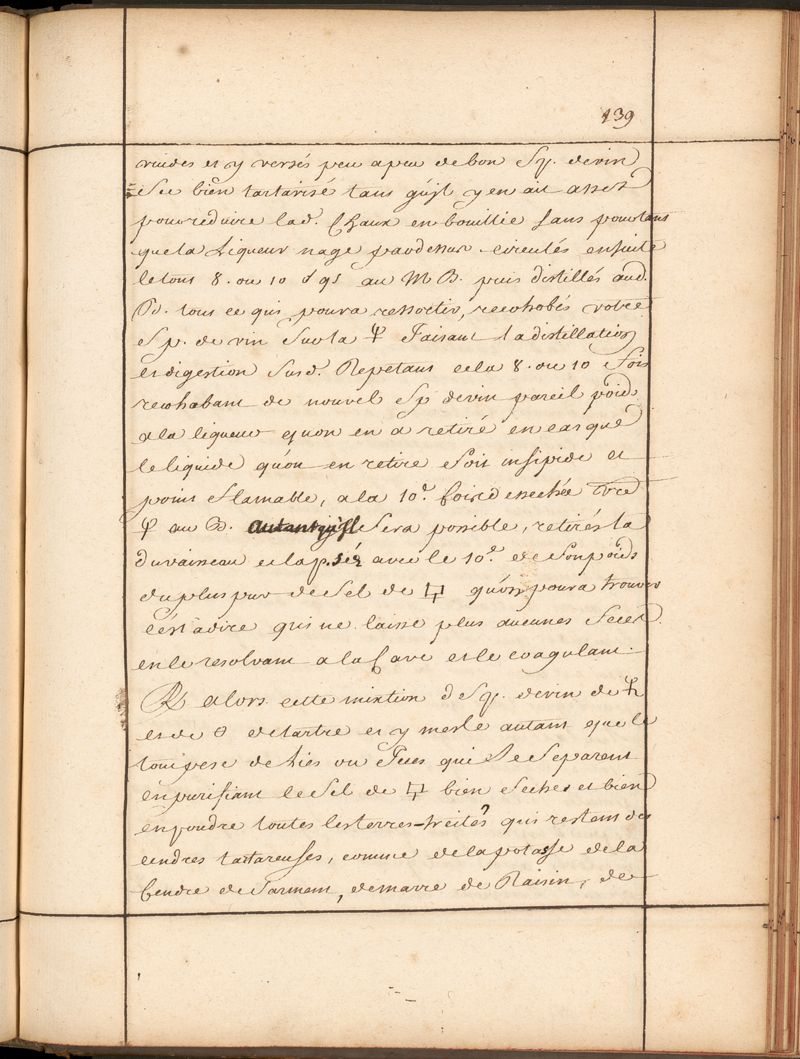 139
vuides et y versés peu a peu de bon Sp. de vin
Sec bien tartarisé tant qu'jl y en ait assez
pour reduire lad. Chaux en bouillie sans pourtant
que la Liqueur nage pardessus circulés ensuite
le tout 8. ou 10 au M B. puis distillés aud.
B. tout ce qui poura ressortir, recohobés votre
Sp. de vin sur la ♆ faisant la distillation
et digestion susd. Repetant cela 8. ou 10 fois
recohabant de nouvel Sp de vin pareil poid
a la liqueur qu on en a retiré en cas que
le liquide qu'on en retire soit insipide et
point flamable, a la 10.e fois dessechée vre
♆ au B. autant qu'jl sera possible, retirés la
du vaisseau et la p.sés avec le 10.e de son poids
du plus pur de Sel de qu'on poura trouver
c'est a dire qui ne laisse plus aucunes feces
en le resolvant a la Cave et le coagulant.
Rx alors cette mixtion d Sp. de vin de
et de θ de tartre et y mesle autant que le
tout pese de Lies ou feces qui se separent
en purifiant le Sel de bien seches et bien
en poudre toutes les terres qui restent des
cendres tartareuses, comme de la potasse de la
Cendre de Sarment, de marre de Raisin, de